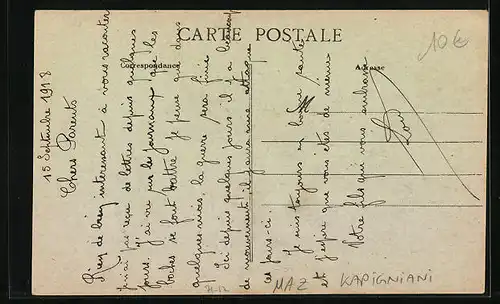 CARTE POSTALE
Correspondance
Adresse
10€
15 Septembre 1918
Chers Parents
Rien de bien intéressant à vous raconter
je n'ai pas reçu de lettres depuis quelques
jours. J'ai vu sur les journaux que les
boches se font battre je pense que dans
quelques mois, la guerre sera finie
Ici depuis quelques jours il y a beaucoup
de mouvement il y aura une attaque
ces jours-ci.
Je suis toujours en bonne santé
et j'espère que vous êtes de même
Votre fils qui vous embrasse
Louis
M
MAZ KAPIGNIANI